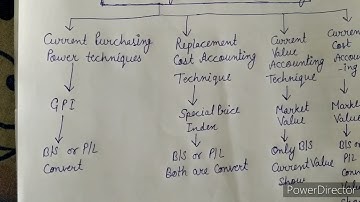 Current Purchasing
Power techniques
GPI
B/S or P/L
Convert
Replacement
Cost Accounting
Technique
Special Price
Index
B/S or P/L
Both are Convert
Current
Value
Accounting
Technique
Market
Value
Only B/S
Current Value
Show
Current
Cost
Accoun
-ing
Market
Value
B/S or
P/L
PowerDirector